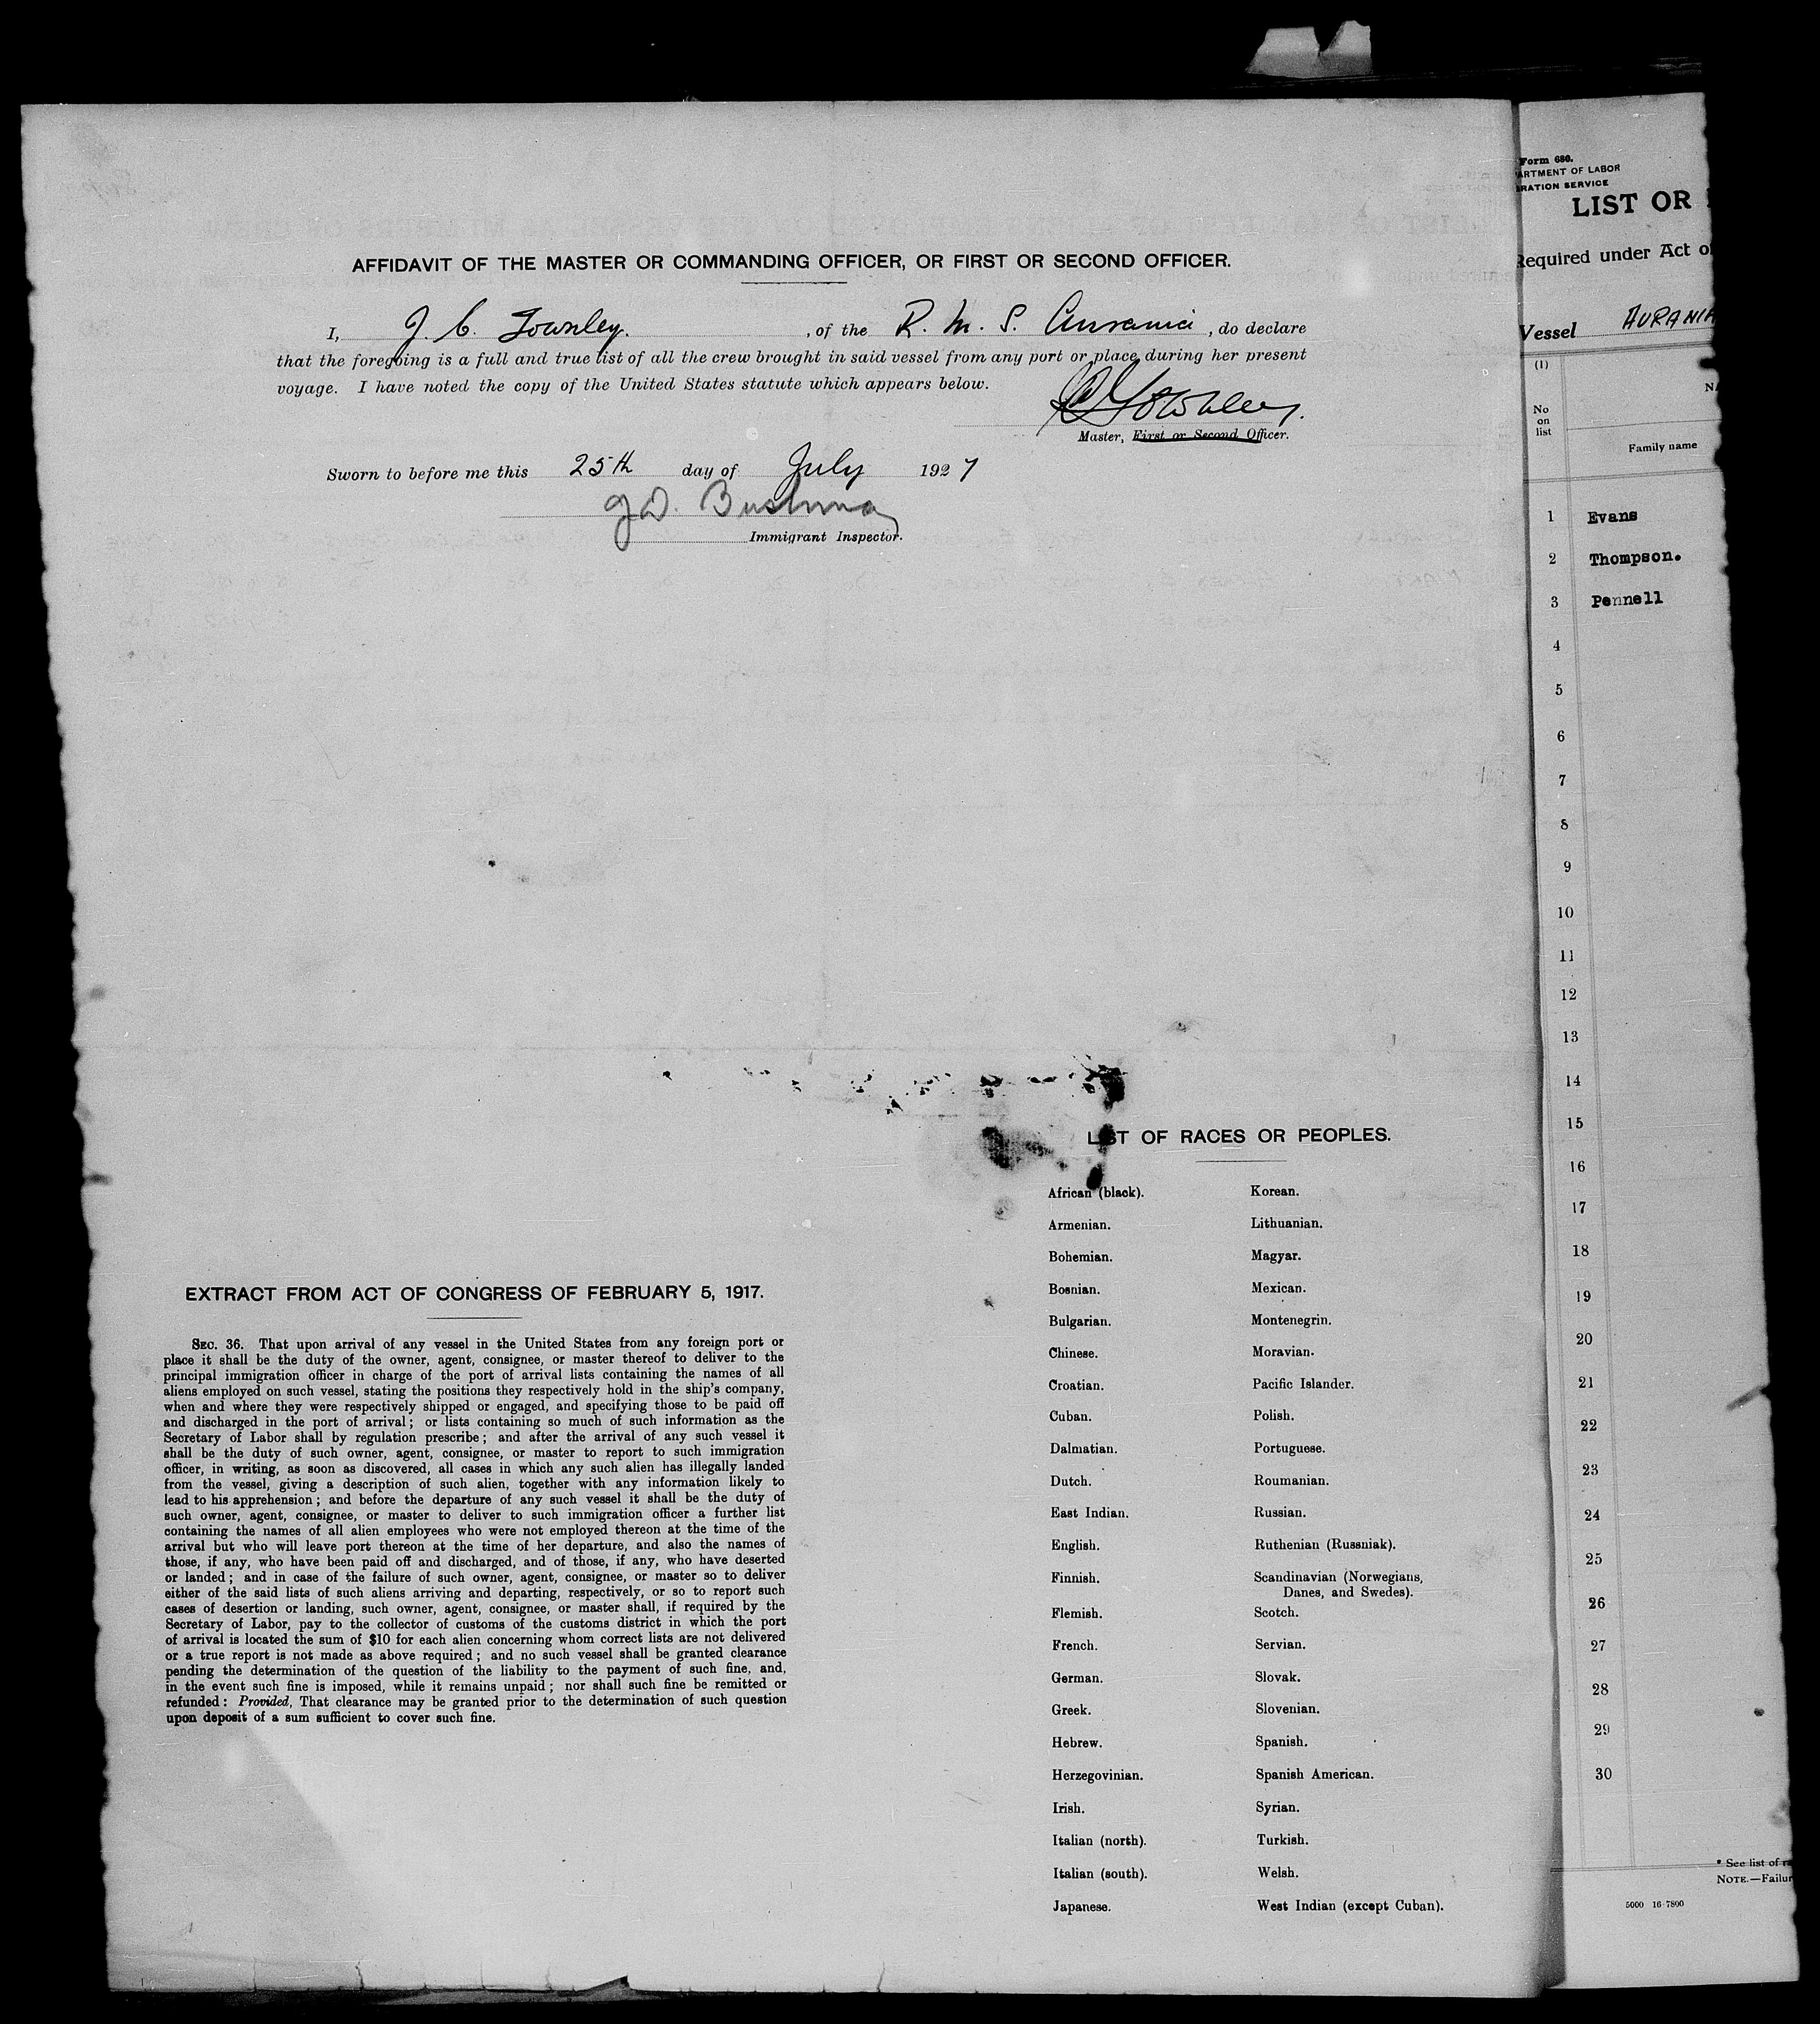 AFFIDAVIT OF THE MASTER OR COMMANDING OFFICER, OR FIRST OR SECOND OFFICER.
I, J. C. Townley. , of the R. M. S. Aurania , do declare
that the foregoing is a full and true list of all the crew brought in said vessel from any port or place during her present
voyage. I have noted the copy of the United States statute which appears below.
Townley.
Master, First or Second Officer.
Sworn to before me this 25th day of July 1927
Immigrant Inspector.
LIST OF RACES OR PEOPLES.
African (black). Korean.
Armenian. Lithuanian.
Bohemian. Magyar.
Bosnian. Mexican.
Bulgarian. Montenegrin.
Chinese. Moravian.
Croatian. Pacific Islander.
Cuban. Polish.
Dalmatian. Portuguese.
Dutch. Roumanian.
East Indian. Russian.
English. Ruthenian (Russniak).
Finnish. Scandinavian (Norwegians,
Danes, and Swedes).
Flemish. Scotch.
French. Servian.
German. Slovak.
Greek. Slovenian.
Hebrew. Spanish.
Herzegovinian. Spanish American.
Irish. Syrian.
Italian (north). Turkish.
Italian (south). Welsh.
Japanese. West Indian (except Cuban).
EXTRACT FROM ACT OF CONGRESS OF FEBRUARY 5, 1917.
SEC. 36. That upon arrival of any vessel in the United States from any foreign port or
place it shall be the duty of the owner, agent, consignee, or master thereof to deliver to the
principal immigration officer in charge of the port of arrival lists containing the names of all
aliens employed on such vessel, stating the positions they respectively hold in the ship's company,
when and where they were respectively shipped or engaged, and specifying those to be paid off
and discharged in the port of arrival; or lists containing so much of such information as the
Secretary of Labor shall by regulation prescribe; and after the arrival of any such vessel it
shall be the duty of such owner, agent, consignee, or master to report to such immigration
officer, in writing, as soon as discovered, all cases in which any such alien has illegally landed
from the vessel, giving a description of such alien, together with any information likely to
lead to his apprehension; and before the departure of any such vessel it shall be the duty of
such owner, agent, consignee, or master to deliver to such immigration officer a further list
containing the names of all alien employees who were not employed thereon at the time of the
arrival but who will leave port thereon at the time of her departure, and also the names of
those, if any, who have been paid off and discharged, and of those, if any, who have deserted
or landed; and in case of the failure of such owner, agent, consignee, or master so to deliver
either of the said lists of such aliens arriving and departing, respectively, or so to report such
cases of desertion or landing, such owner, agent, consignee, or master shall, if required by the
Secretary of Labor, pay to the collector of customs of the customs district in which the port
of arrival is located the sum of $10 for each alien concerning whom correct lists are not delivered
or a true report is not made as above required; and no such vessel shall be granted clearance
pending the determination of the question of the liability to the payment of such fine, and,
in the event such fine is imposed, while it remains unpaid; nor shall such fine be remitted or
refunded: Provided, That clearance may be granted prior to the determination of such question
upon deposit of a sum sufficient to cover such fine.
Form 680.
ARTMENT OF LABOR
RATION SERVICE
LIST OR
Required under Act o
Vessel AURANIA
(1)
No
on
list
Family name
1 Evans
2 Thompson.
3 Pennell
4
5
6
7
8
9
10
11
12
13
14
15
16
17
18
19
20
21
22
23
24
25
26
27
28
29
30
* See list of
NOTE.—Failur
5000 16-7800